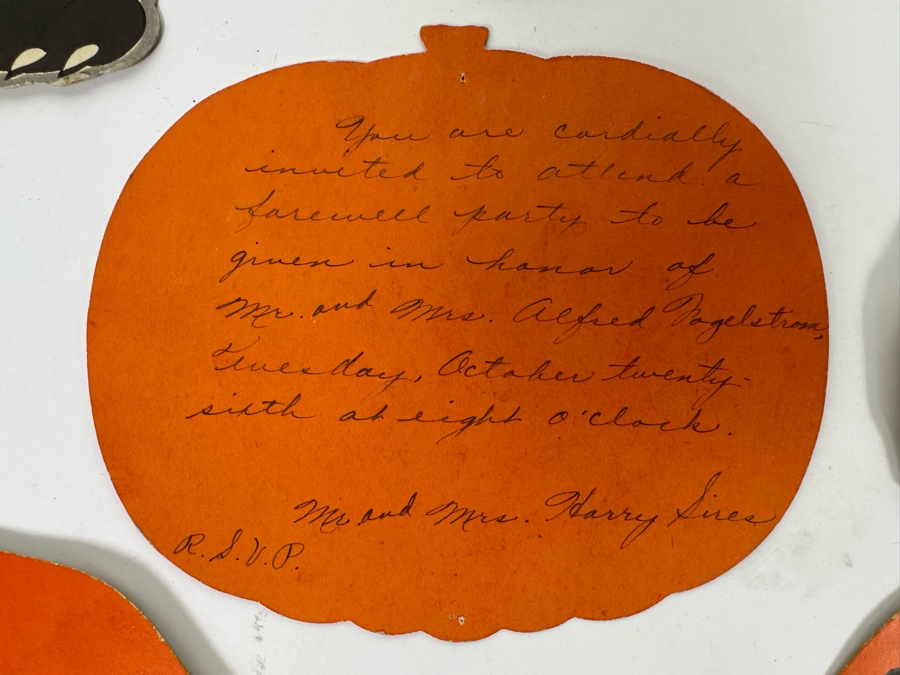 You are cordially
invited to attend a
farewell party to be
given in honor of
Mr. and Mrs. Alfred Fogelstrom,
Tuesday, October twenty-
sixth at eight o'clock.
Mr. and Mrs. Harry Sires
R.S.V.P.